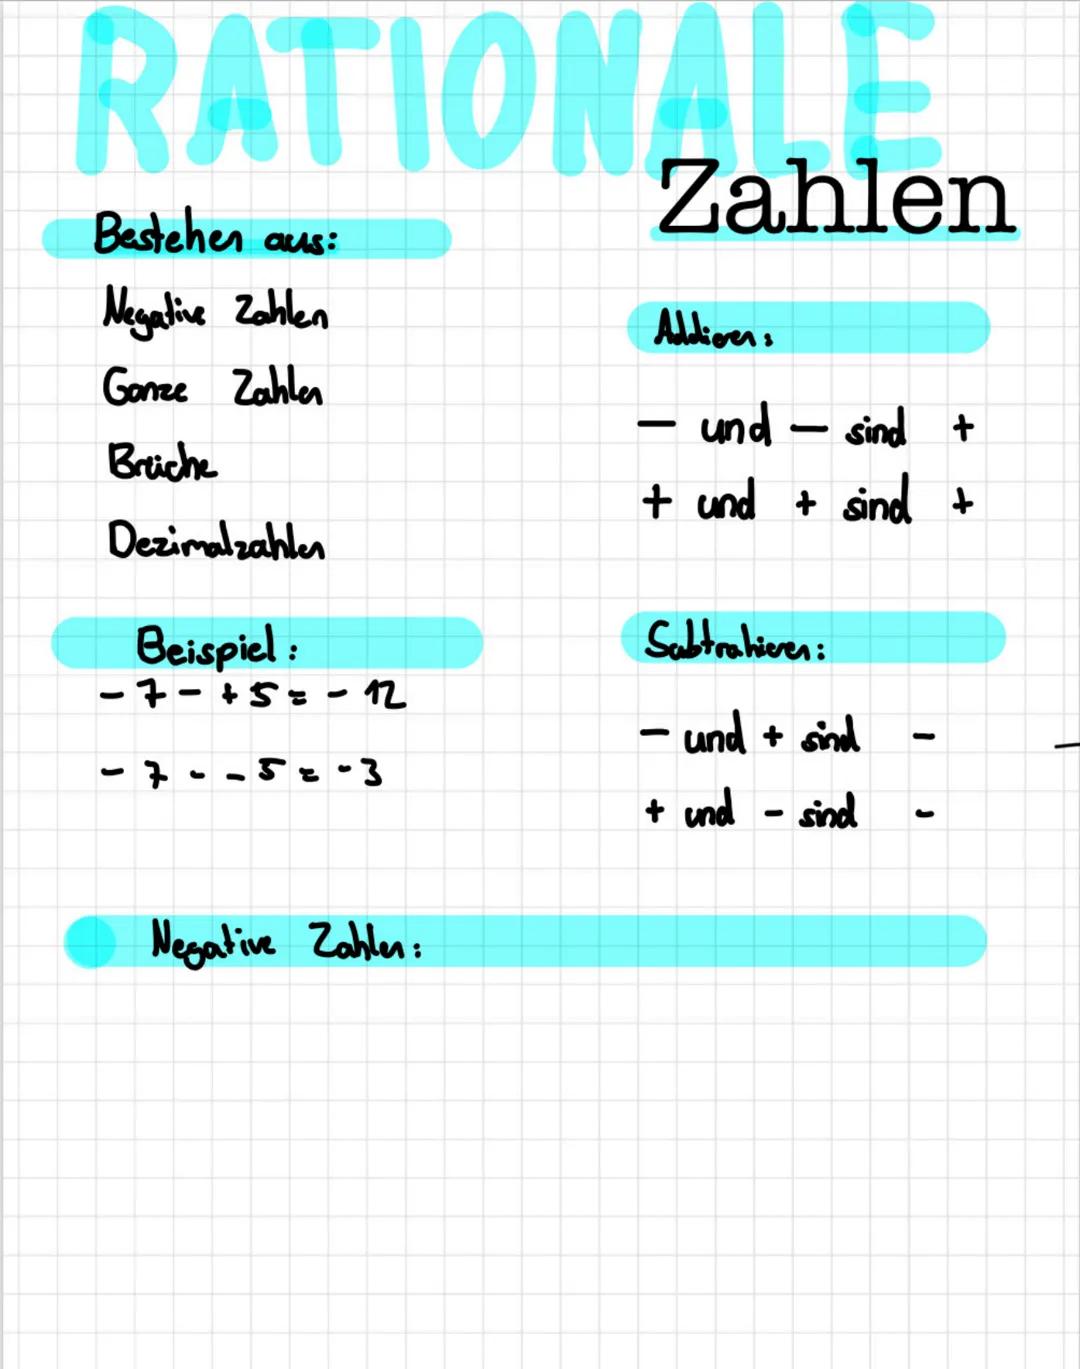 RATIONALE
Zahlen
Bestehen aus:
Negative Zahlen
Ganze Zahlen
Brüche
Dezimalzahlen
Beispiel:
- 7 - + 5 = - 12
- 7 - - 5 = - 3
Addieren:
- und - sind +
+ und + sind +
Subtrahieren:
- und + sind -
+ und - sind -
Negative Zahlen: